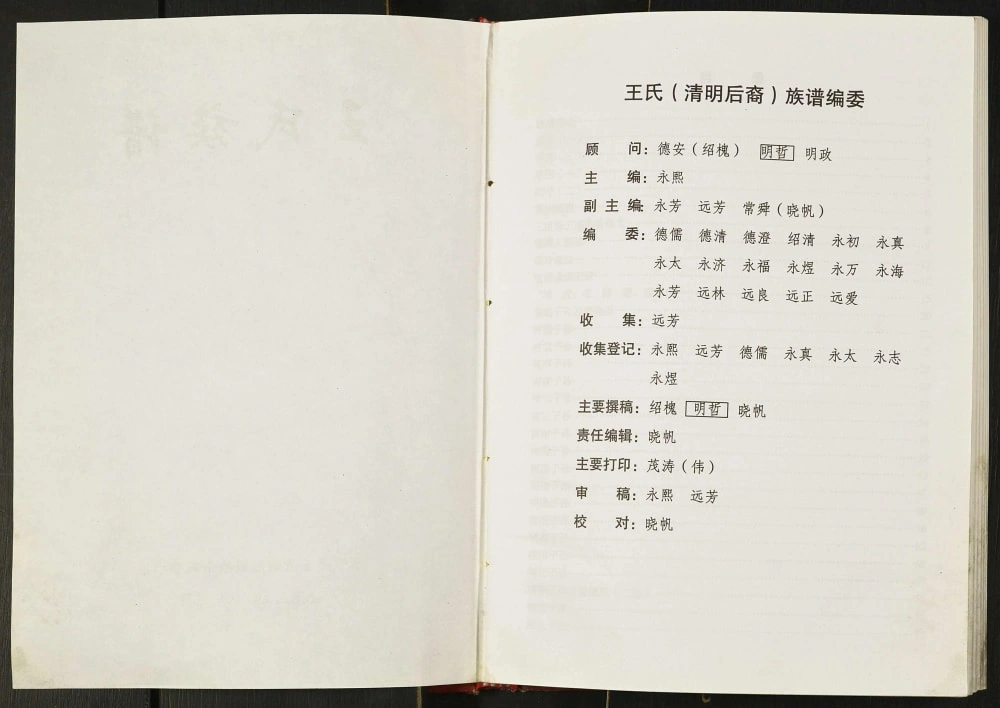 王氏（清明后裔）族谱编委
顾 问：德安（绍槐） 明哲 明政
主 编：永熙
副主编：永芳 远芳 常舜（晓帆）
编 委：德儒 德清 德澄 绍清 永初 永真
永太 永济 永福 永煜 永万 永海
永芳 远林 远良 远正 远爱
收 集：远芳
收集登记：永熙 远芳 德儒 永真 永太 永志
永煜
主要撰稿：绍槐 明哲 晓帆
责任编辑：晓帆
主要打印：茂涛（伟）
审 稿：永熙 远芳
校 对：晓帆